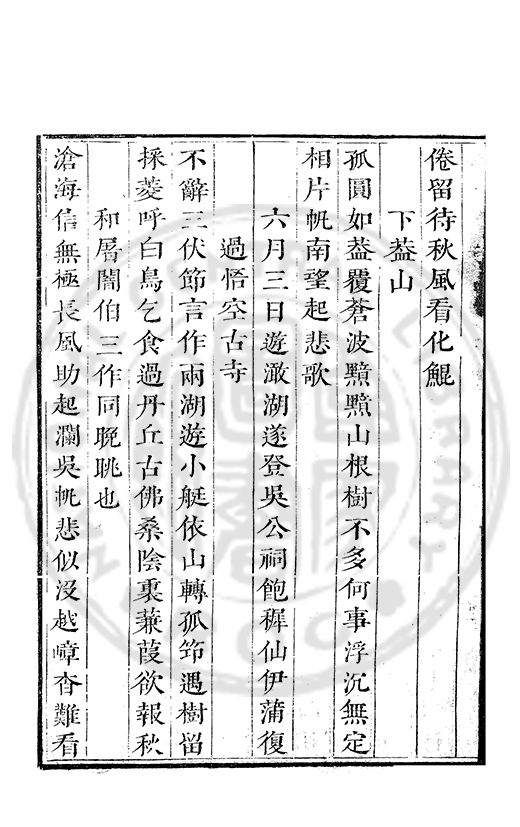 倦留待秋風看化鯤
下葢山
孤圓如葢覆蒼波黰黰山根樹不多何事浮沉無定
相片帆南望起悲歌
六月三日遊澉湖遂登吳公祠飽穉仙伊蒲復
過悟空古寺
不辭三伏節言作兩湖遊小艇依山轉孤筇遇樹留
採菱呼白鳥乞食過丹丘古佛桑陰裏蒹葭欲報秋
和厝闇伯三作同晚眺也
滄海信無極長風助起瀾吳帆悲似沒越嶂杳難看